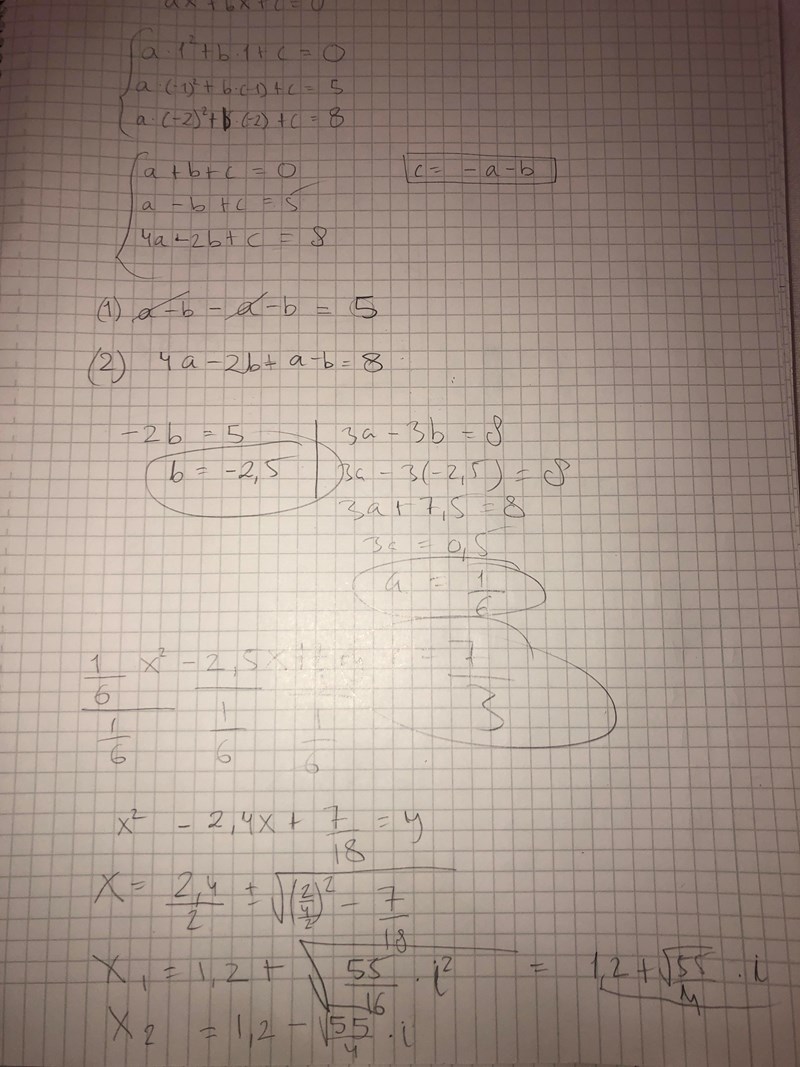 ax²+bx+c=0
a·1²+b·1+c = 0
a·(-1)²+b·(-1)+c = 5
a·(-2)²+b(-2)+c = 8
a+b+c = 0 c = -a-b
a-b+c = 5
4a-2b+c = 8
(1) a-b-a-b = 5
(2) 4a-2b+a-b=8
-2b = 5 3a-3b = 8
b = -2,5 3a-3(-2,5) = 8
3a+7,5=8
3a = 0,5
a = 1/6
1/6 x² - 2,5x = 7/3
1/6 1/6 1/6
x² - 2,4x + 7/18 = y
x = 2,4/2 ± √((2,4/2)² - 7/18)
x₁ = 1,2 + √(55/16 · i²) = 1,2 + √55/4 · i
x₂ = 1,2 - √55/4 · i